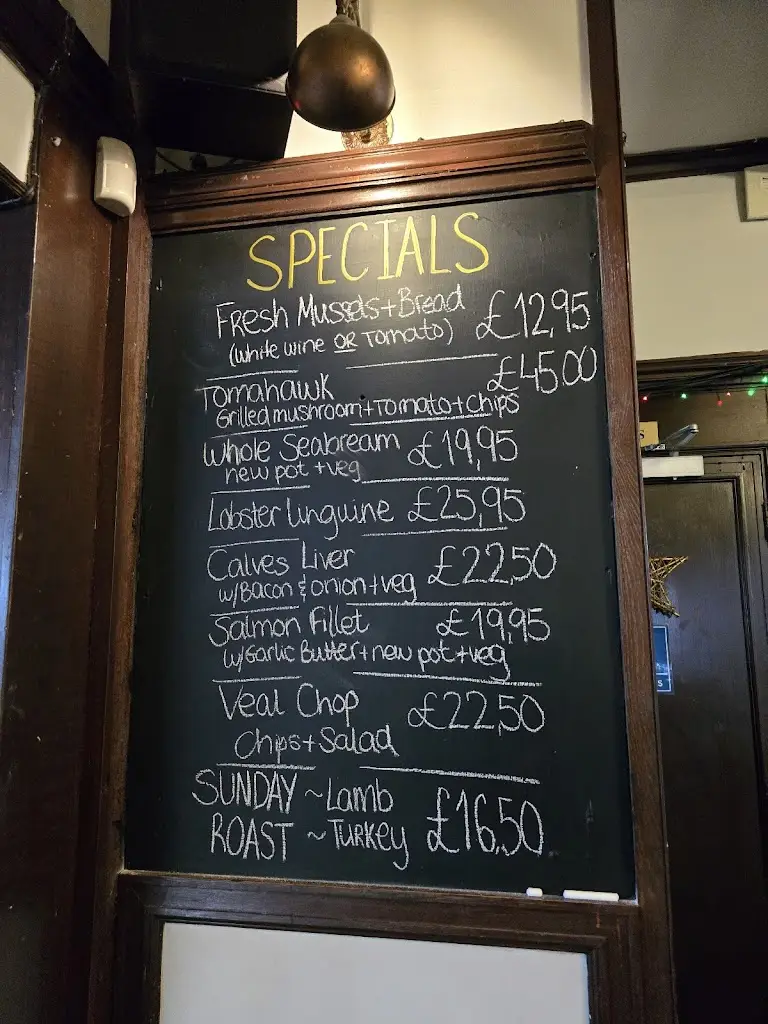 SPECIALS
Fresh Mussels + Bread £12,95
(white wine OR Tomato)
Tomahawk £45.00
Grilled mushroom + Tomato + chips
Whole Seabream £19,95
new pot + veg
Lobster linguine £25,95
Calves Liver £22,50
w/Bacon & onion + veg
Salmon Fillet £19,95
w/Garlic Butter + new pot + veg
Veal Chop £22,50
Chips + Salad
SUNDAY ~ Lamb £16,50
ROAST ~ Turkey